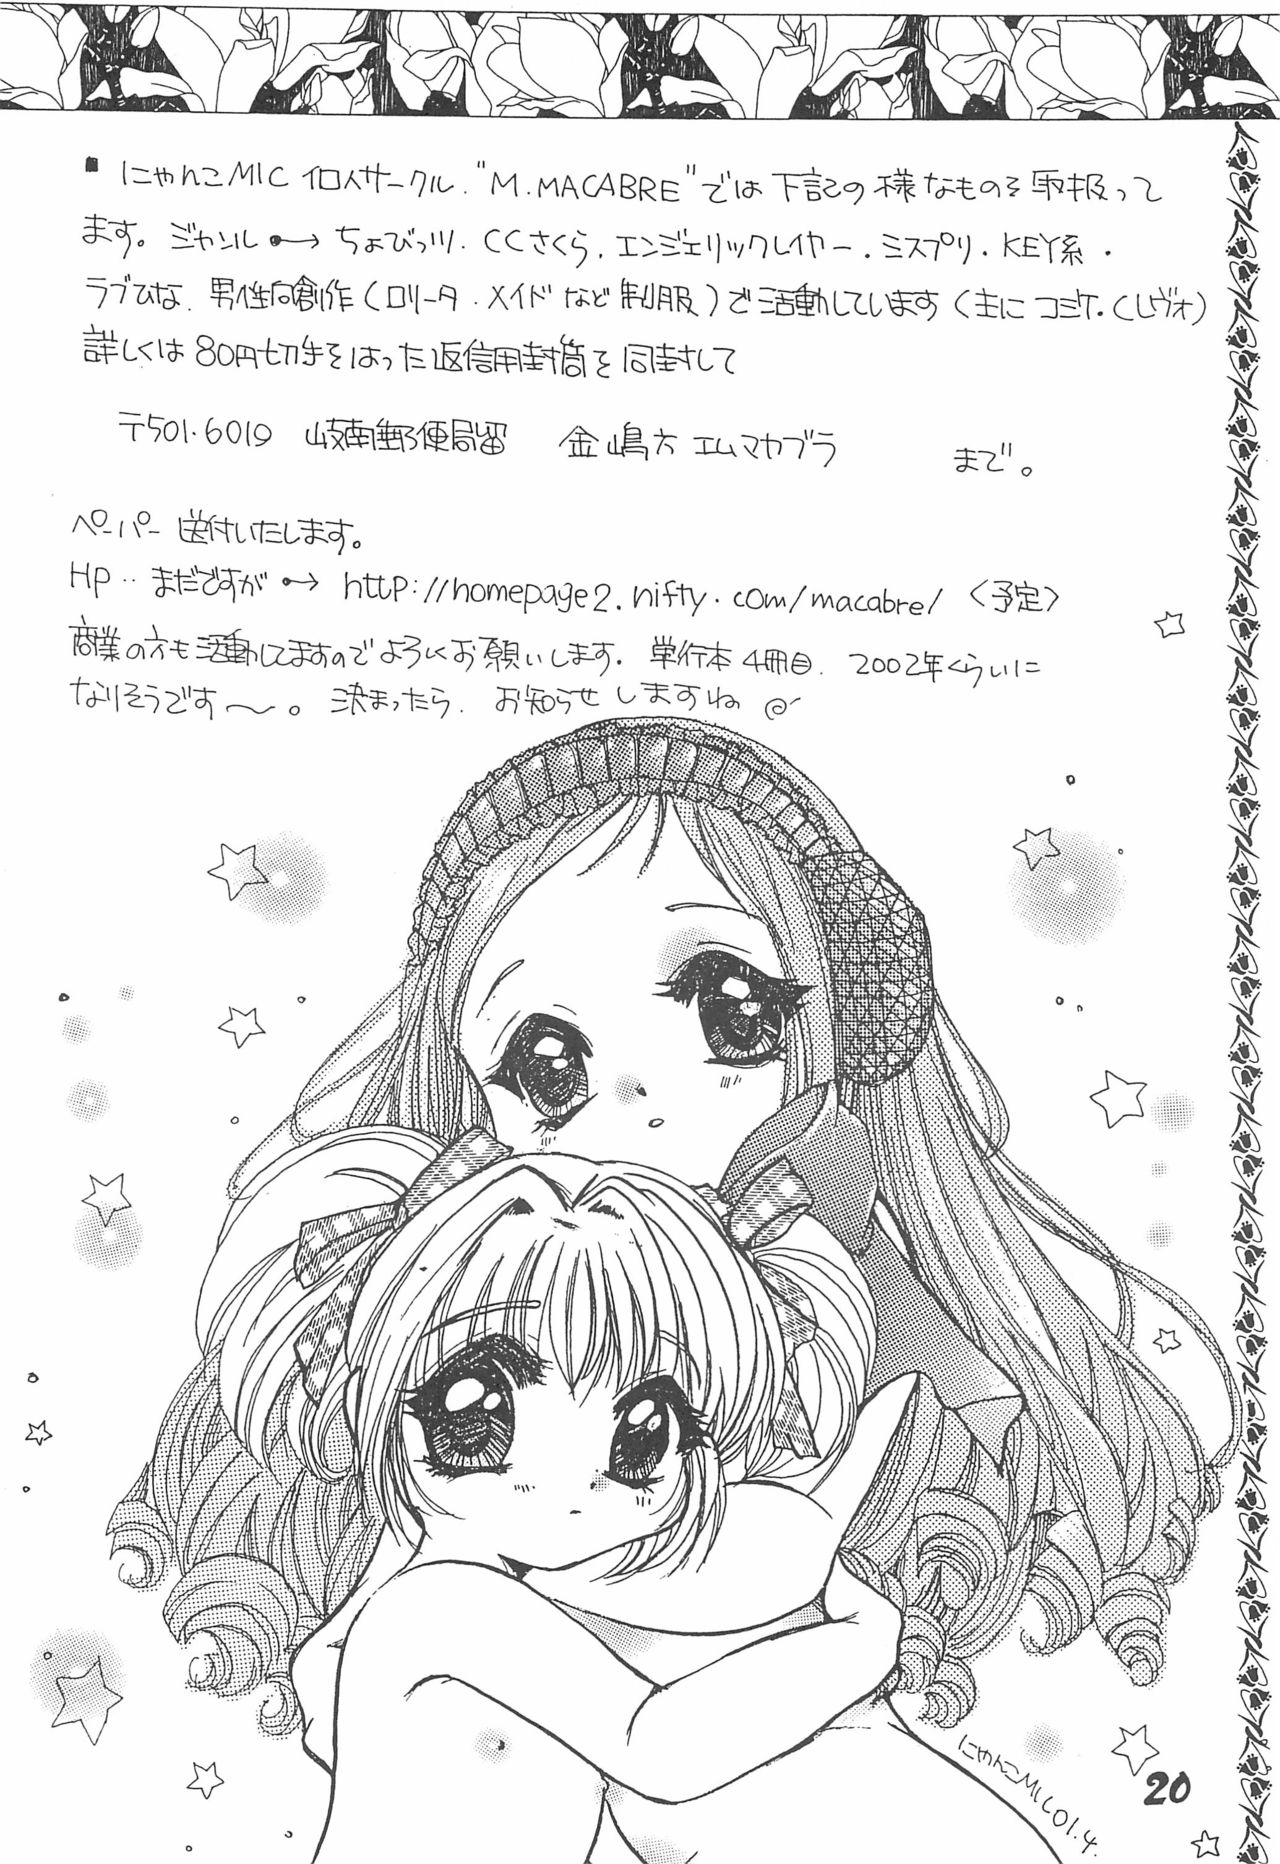 ■ にゃんこMIC 個人サークル. "M.MACABRE"では 下記の 様なものを 取扱って
ます。ジャンル ●→ ちょびっツ. CCさくら. エンジェリックレイヤー. ミスプリ. KEY系.
ラブひな. 男性向創作(ロリータ.メイド など 制服)で 活動しています(主に コミケ. Cレヴォ)
詳しくは 80円切手をはった返信用封筒を 同封して
〒501.6019 岐南郵便局留 金嶋方 エムマカブラ まで。
ペーパー 送付いたします。
HP‥まだですが ●→ http://homepage2.nifty.com/macabre/ <予定>
商業の方も活動してますのでよろしくお願いします. 単行本4冊目. 2002年くらいに
なりそうです〜。決まったら. お知らせしますね
にゃんこMIC 01.4.
20